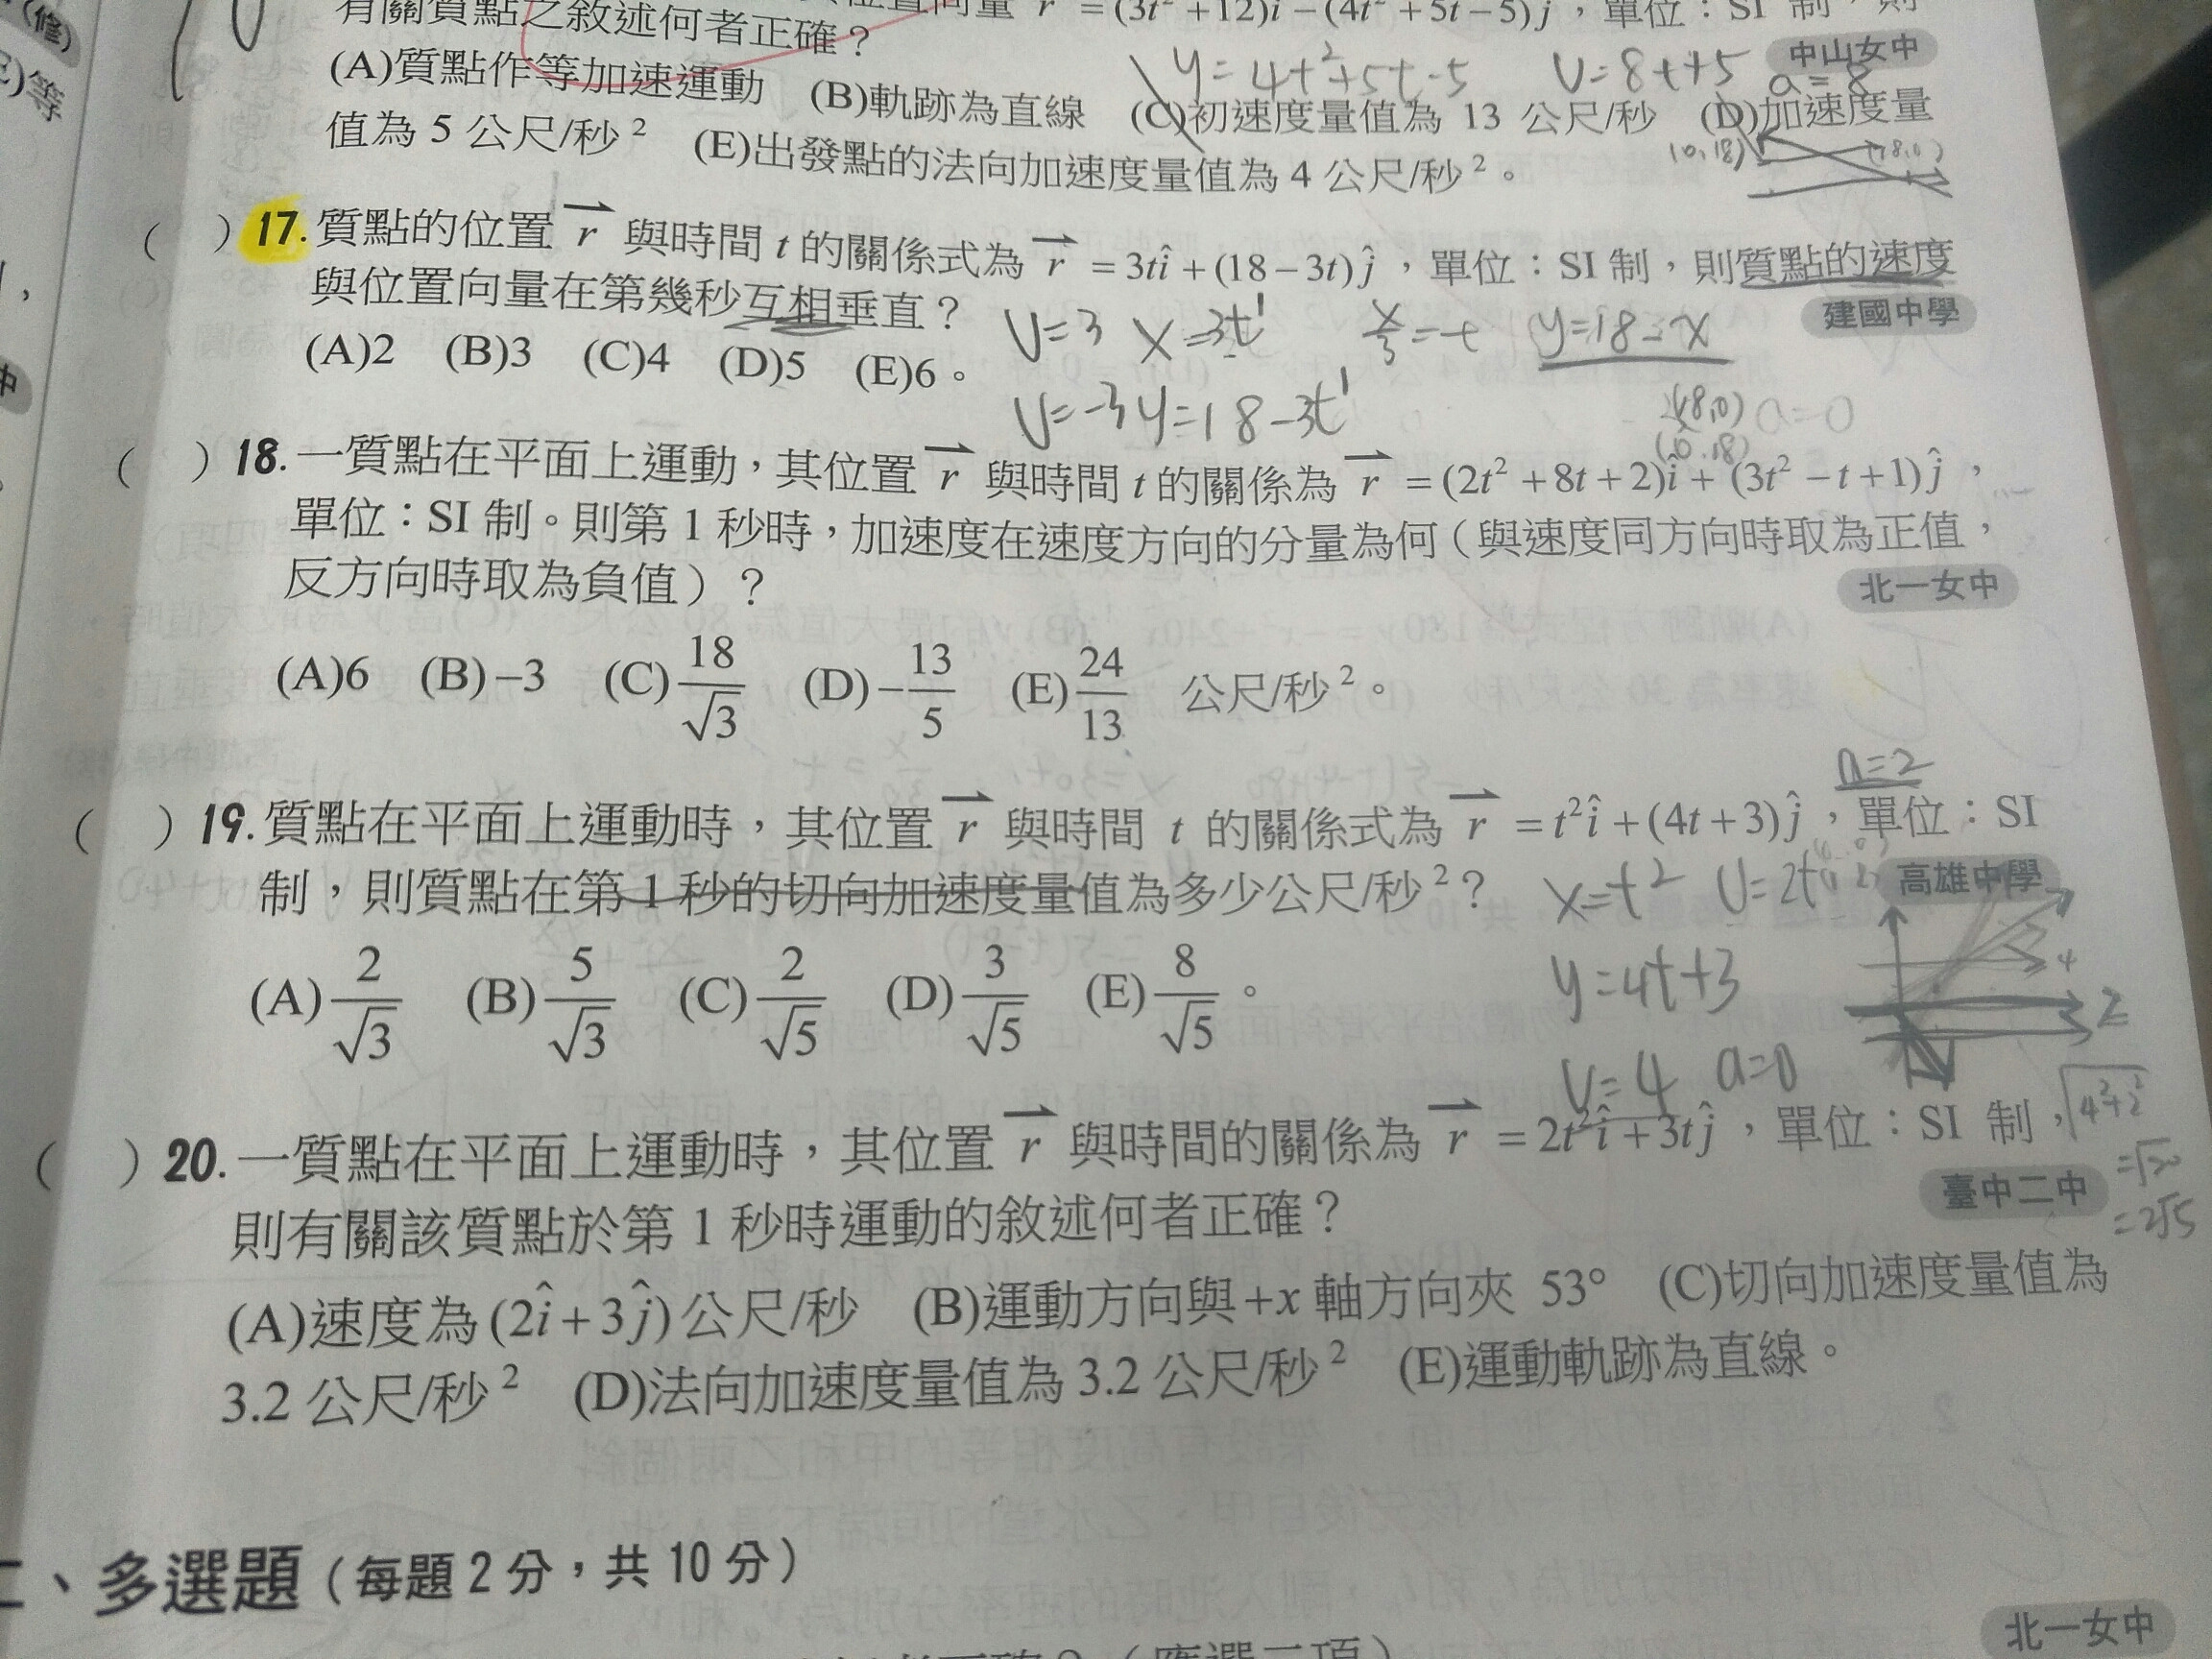 (修)
等
有關質點之敘述何者正確？
r = (3t² +12)i −(4t² +5t−5) j ，單位：SI 制，則
中山女中
y = 4t²+5t-5 v=8t+5 a=8
(A)質點作等加速運動 (B)軌跡為直線 (C)初速度量值為 13 公尺/秒 (D)加速度量
值為 5 公尺/秒² (E)出發點的法向加速度量值為 4 公尺/秒²。
(0,18) (18,0)
( ) 17. 質點的位置 r⃗ 與時間 t 的關係式為 r⃗ = 3tî + (18 − 3t) ĵ ，單位：SI 制，則質點的速度
與位置向量在第幾秒互相垂直？
建國中學
v=3 x=3t¹ x/3=t y=18-x
(A)2 (B)3 (C)4 (D)5 (E)6。
v=-3 y=18-3t¹
(18,0) a=0
(0,18)
( ) 18. 一質點在平面上運動，其位置 r⃗ 與時間 t 的關係為 r⃗ = (2t² + 8t + 2)î + (3t² − t + 1) ĵ ，
單位：SI 制。則第 1 秒時，加速度在速度方向的分量為何（與速度同方向時取為正值，
反方向時取為負值）？
北一女中
(A)6 (B)−3 (C)18/√3 (D)−13/5 (E)24/13 公尺/秒²。
a=2
( ) 19. 質點在平面上運動時，其位置 r⃗ 與時間 t 的關係式為 r⃗ = t²î + (4t + 3) ĵ ，單位：SI
制，則質點在第 1 秒的切向加速度量值為多少公尺/秒²？
高雄中學
x=t² v=2t
(A)2/√3 (B)5/√3 (C)2/√5 (D)3/√5 (E)8/√5 。
y=4t+3
4
2
v=4 a=0
( ) 20. 一質點在平面上運動時，其位置 r⃗ 與時間的關係為 r⃗ = 2t²î + 3tĵ ，單位：SI 制，
√4²+2²
=√20
=2√5
臺中二中
則有關該質點於第 1 秒時運動的敘述何者正確？
(A)速度為 (2î + 3ĵ) 公尺/秒 (B)運動方向與 +x 軸方向夾 53° (C)切向加速度量值為
3.2 公尺/秒² (D)法向加速度量值為 3.2 公尺/秒² (E)運動軌跡為直線。
二、多選題（每題 2 分，共 10 分）
北一女中
（應選二項）